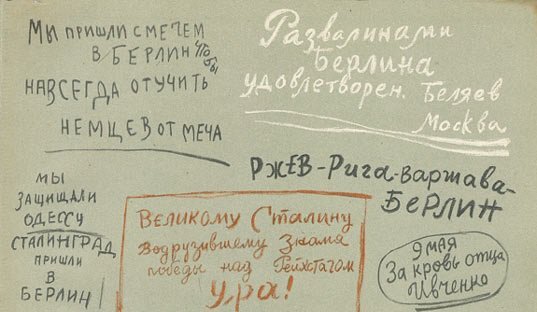 Мы пришли с мечем
в Берлин чтобы
навсегда отучить
немцев от меча
Развалинами
Берлина
удовлетворен. Беляев
Москва
Ржев-Рига-Варшава-
Берлин
Мы
защищали
Одессу
Сталинград
пришли
в
Берлин!
Великому Сталину
Водрузившему Знамя
победы над Рейхстагом
Ура!
9 мая
За кровь отца
Ивченко